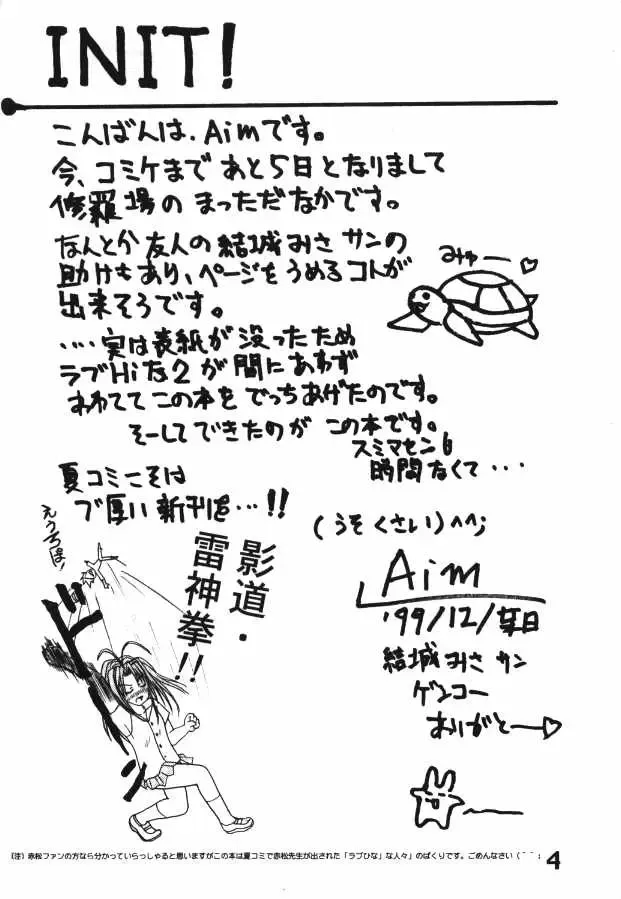 INIT!
こんばんは、Aimです。
今、コミケまであと5日となりまして
修羅場のまっただなかです。
なんとか友人の結城みさサンの
助けもあり、ページをうめるコトが
出来そうです。
‥‥実は表紙が没ったため
ラブHiな2が間にあわず
あわててこの本をでっちあげたのです。
そーしてできたのがこの本です。
スミマセン6
時間なくて・・・
みゅー♡
夏コミこそは
ブ厚い新刊を…!!
(うそくさい)^^;
えうろぱ!
影道・
雷神拳!!
ドーン
Aim
'99/12/某日
結城みさサン
ゲンコー
ありがとー♡
(注)赤松ファンの方なら分かっていらっしゃると思いますがこの本は夏コミで赤松先生が出された「ラブひな」な人々」のぱくりです。ごめんなさい(＾＾;
4